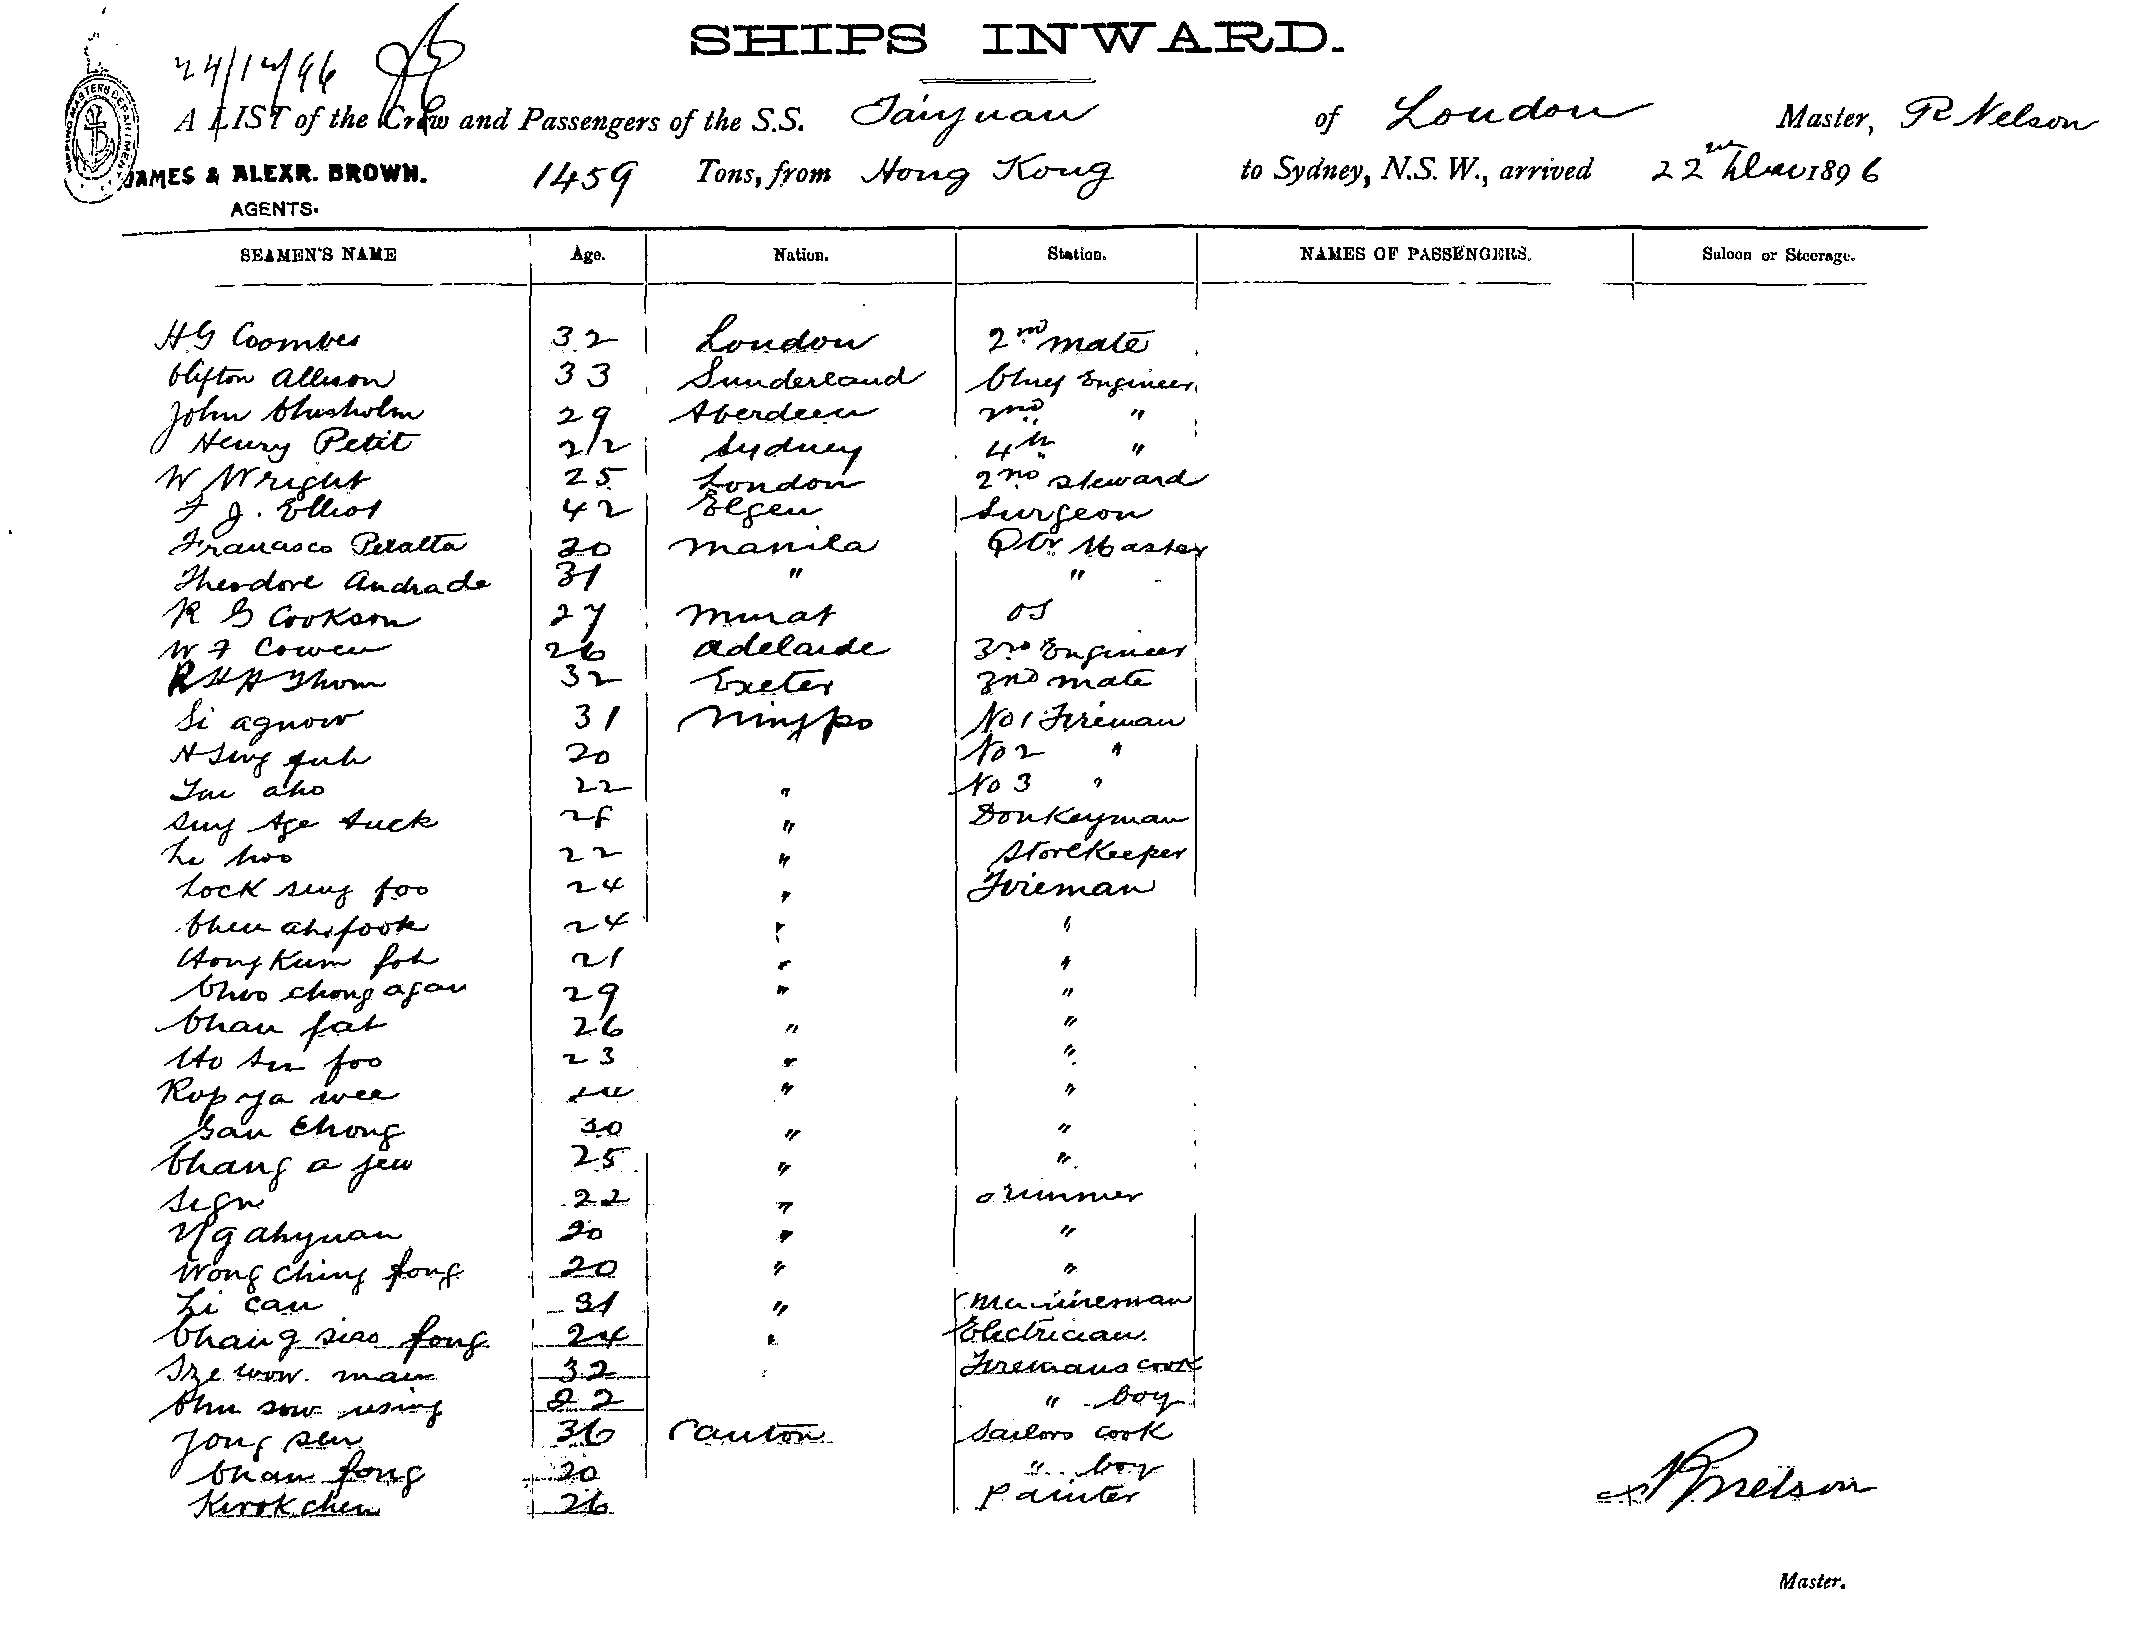 SHIPS INWARD.
24/12/96
A LIST of the Crew and Passengers of the S.S. Taiyuan of London Master, R Nelson
JAMES & ALEXR. BROWN. 1459 Tons, from Hong Kong to Sydney, N.S.W., arrived 22nd Dec 1896
AGENTS.
SEAMEN'S NAME Age. Nation. Station. NAMES OF PASSENGERS. Saloon or Steerage.
H G Coombes 32 London 2nd mate
Clifton Allison 33 Sunderland Chief Engineer
John Chisholm 29 Aberdeen 2nd "
Henry Petit 22 Sydney 4th "
W Wright 25 London 2nd Steward
F J. Elliot 42 Elgen Surgeon
Francisco Peralta 30 Manila Qtr Master
Theodore Andrade 31 " "
R G Cookson 27 OS
W F Cowen 26 Adelaide 3rd Engineer
R H A Thom 32 Exeter 2nd mate
Si agnow 31 Ningpo No 1 Fireman
20 No 2 "
aho 22 " No 3 "
Sing Age Suck 28 " Donkeyman
Le hoo 22 " Storekeeper
Lock Sing foo 24 " Fireman
Chen ah fook 24 " "
Hong Kum foh 21 " "
Choo chong agan 29 " "
Chan fat 26 " "
Ho Sin foo 23 " "
Kop ya wee " "
San Chong 30 " "
Chang a jew 25 " "
22 " Trimmer
Ng ahyuan 20 " "
Wong Ching fong 20 " "
Li can 31 "
Chang siao fong 24 " Electrician.
Sze wow main 32 Firemans cook
Chu sow using 22 " boy
Jong sen 36 Canton Sailors cook
Chan fong 20 " boy
Kwok chen 26 Painter
R Nelson
Master.